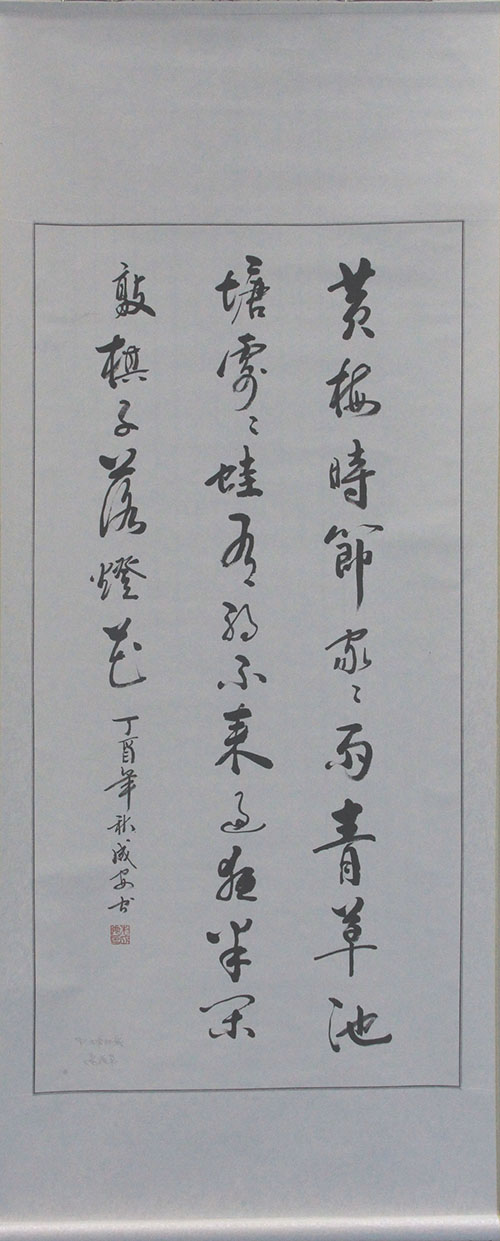 黄梅時節家〻雨青草池
塘處〻蛙有約不来過夜半閑
敲棋子落燈花
丁酉年秋成安书